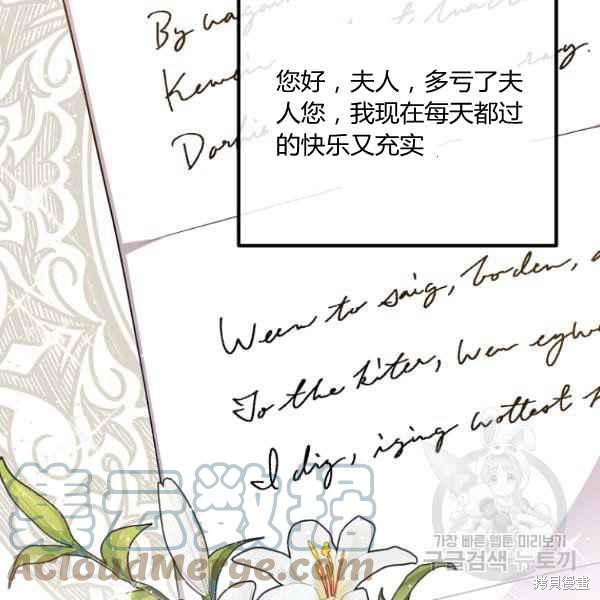 By
您好，夫人，多亏了夫
人您，我现在每天都过
的快乐又充实
Ween to saig, borden,
To the kiter, wen
I dig, iging wottest
集云数据
AcloudMerge.com
가장 빠른 웹툰 미리보기
구글검색 뉴토끼
拷貝漫畫